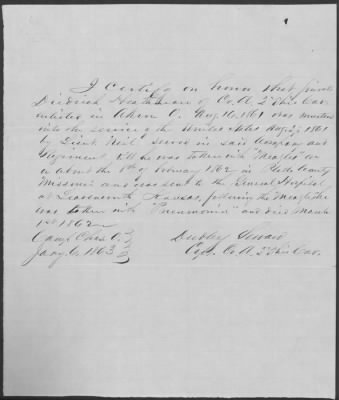 I certify on honor that private
Diedrich Heathman of Co. A. 2" Ohio Cav.
enlisted in Akron O. Aug. 16, 1861 was mustered
into the service of the United States Aug. 1861
by Lieut Neil served in said Company and
Regiment till he was taken with "Measles" on
or about the 8th of February 1862 in Platte County
Missouri and was sent to the General Hospital
at Leavenworth Kansas, following the Measles he
was taken with "Pneumonia" and died March
1st 1862
Camp Chase O.
Jany 6, 1863
Dudley Seward
Capt. Co A. 2" Ohio Cav.